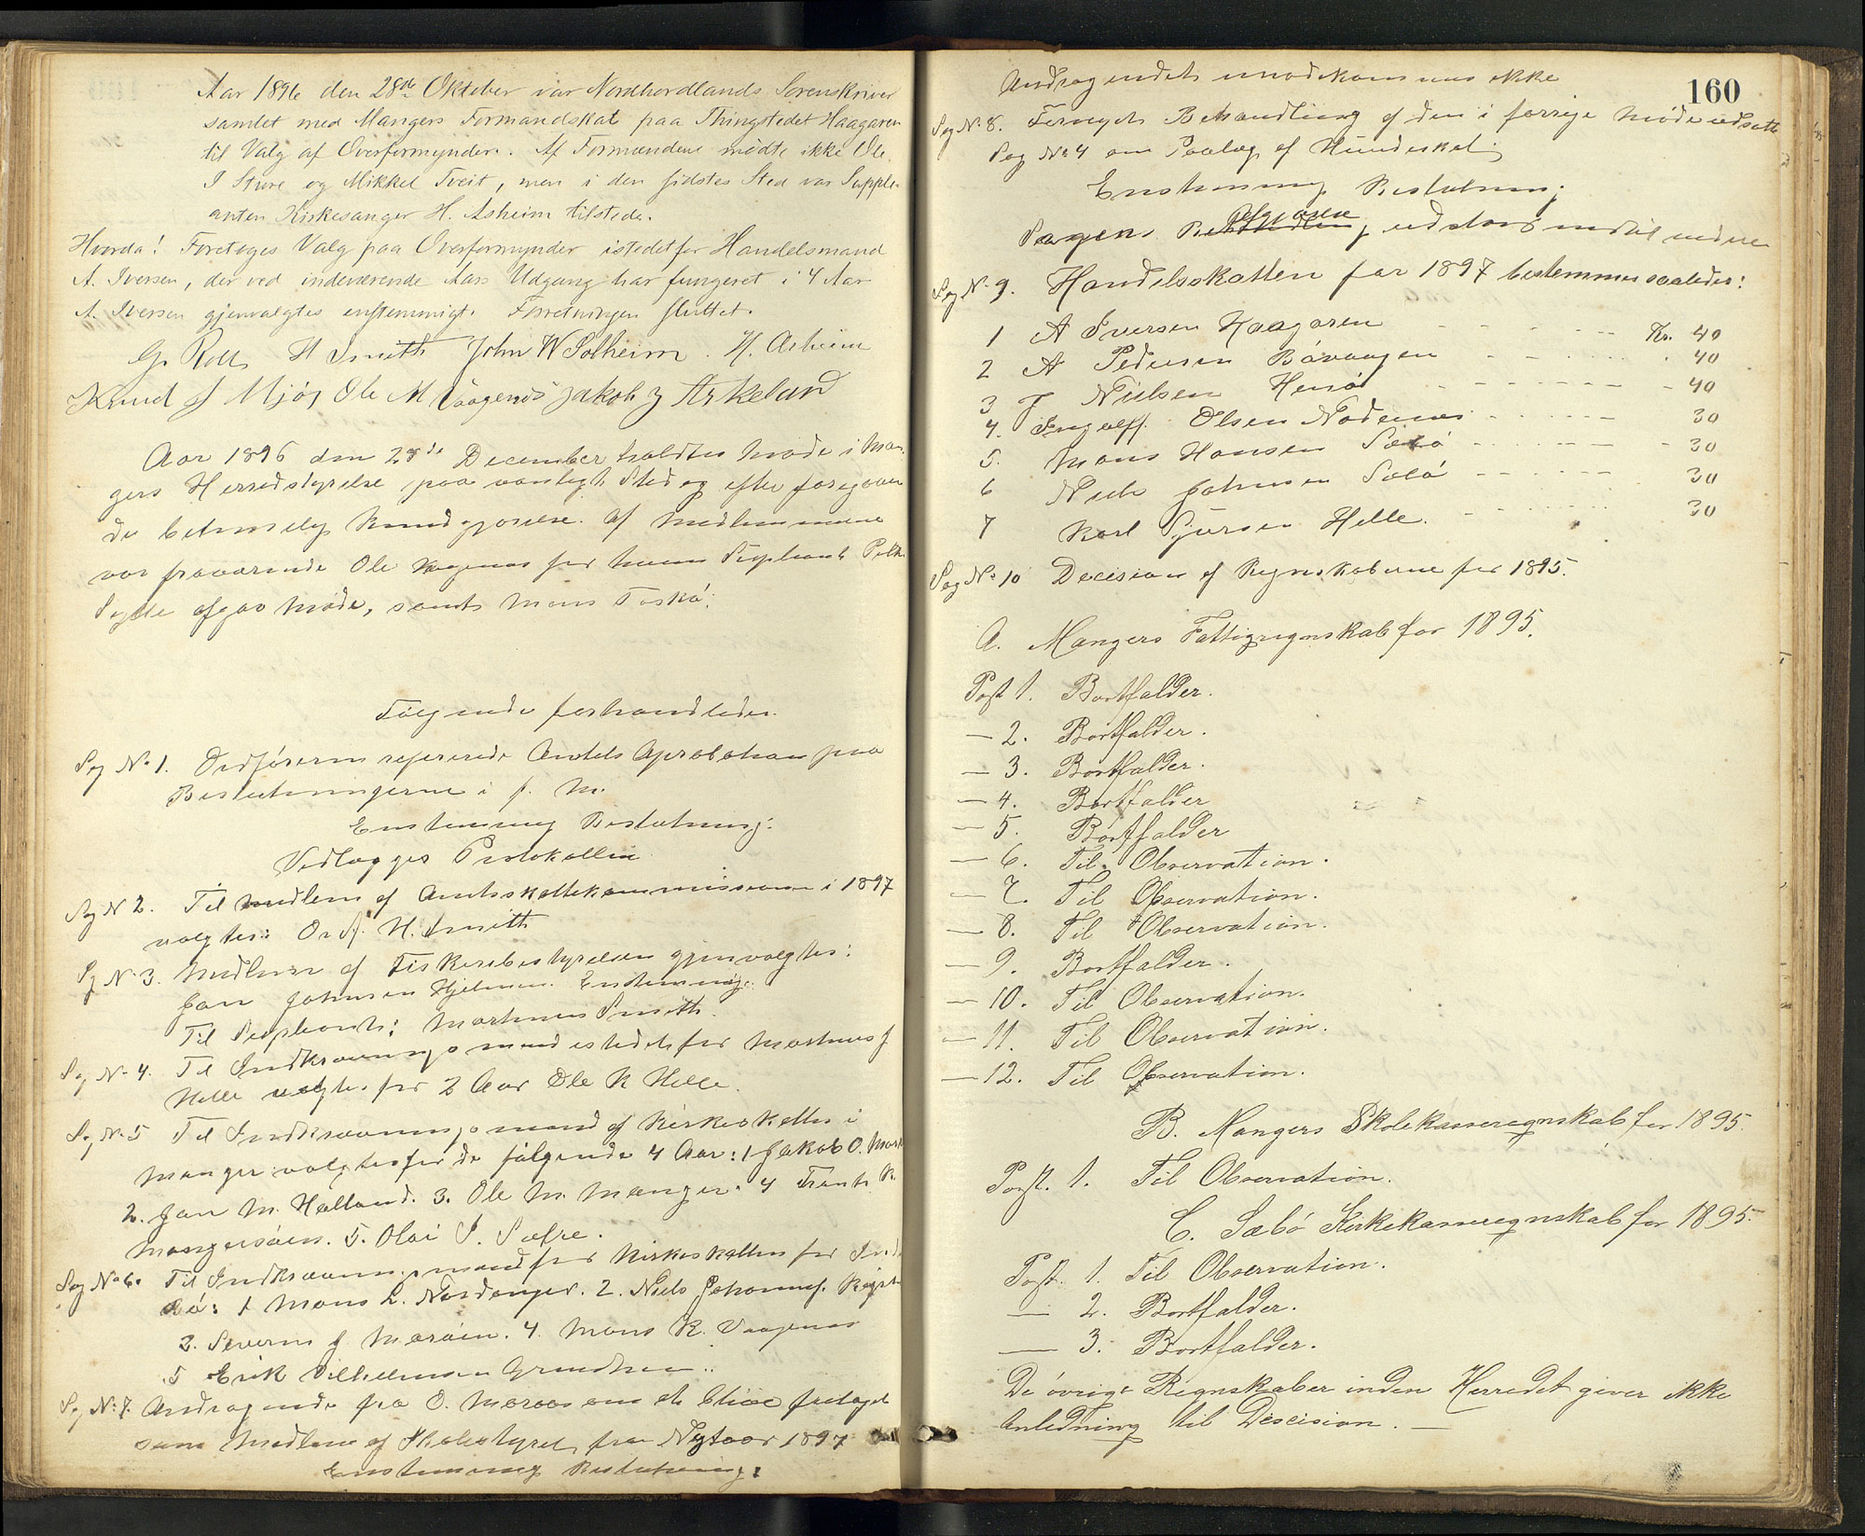 Aar 1896 den 28de Oktober var Nordhordlands Sorenskriver
samlet med Mangers Formandskab paa Thingstedet Haagaren
til Valg af Overformynder. Af Formændene mødte ikke Ole
I Sture og Mikkel Tveit, men i den sidstes Sted var Supple-
anten Kirkesanger H. Asheim tilstede.
Hvorda! Foretoges Valg paa Overformynder istedetfor Handelsmand
A. Iversen, der ved indeværende Aars Udgang har fungeret i 4 Aar
A. Iversen gjenvalgtes enstemmigt. Forretningen sluttet.
G. Roll H Smith John W Solheim. H. Asheim
Knud J Mjøs Ole M Vaagenes Jakob J Askeland
Aar 1896 den 28de December holdtes Møde i Man-
gers Herredstyrelse paa vanligt Sted og efter foregaaen
de betimelig Kundgjørelse. Af Medlemmerne
var fraværende Ole Vagenes for hvem Supleant
afgav Møde, samt Mons Toskø.
Følgende forhandledes.
Sag No 1. Ordføreren refererede Amtets Aprobation paa
Beslutningerne i f. M.
Enstemmig Beslutning:
Vedlægges Protokollen
Sag N 2. Til Medlem af Amtsskattekommissionen i 1897
valgtes: Ordf. H. Smith
Sag No 3. Medlem af Fiskeribestyrelsen gjenvalgtes:
Jan Johnsen Hjelmen. Enstemmig.
Til Supleant: Martinus Smith.
Sag No 4. Til Indkrævningsmand istedetfor Martinus J
Helle valgtes for 2 Aar Ole K Helle.
Sag No 5 Til Indkrævningsmand af Kirkeskatten i
Manger valgtes for de følgende 4 Aar: 1 Jakob O.
2. Jan M. Halland. 3. Ole M. Manger. 4
Mangersøien. 5. Olai I. Sætre.
Sag No 6. Til Indkrævningsmand for Kirkeskatten for
bø: 1 Mons L. Nordanger. 2. Niels Johannes.
3. Severin J Marøien. 4. Mons K. Vaagenes
5 Erik Vilhelmsen
Sag No 7. Andragende fra O. Maraas om at blive fritaget
som Medlem af Skolestyret fra Nytaar 1897
Enstemmig Beslutning:
160
Andragendet imødekommes ikke
Sag No 8. Fornyet Behandling af den i forrige Møde udsatte
Sag No 4 om Paalæg af Hundeskat.
Enstemmig Beslutning:
Afgjørelse
Sagens Behandling udstaar indtil videre
Sag No 9. Handelsskatten for 1897 bestemmes saaledes:
1 A Iversen Haagaren Kr. 40
2 A Pedersen Bøvaagen 40
3 J Nielsen Hernø 40
4. Ingolf Olsen Nødenes 30
5. Mons Hansen Sæbø 30
6 Niels Johnsen Solø 30
7 Karl Sjursen Helle. 30
Sag No 10 Decision af Regnskaberne for 1895.
A. Mangers Fattigregnskab for 1895.
Post 1. Bortfalder.
— 2. Bortfalder.
— 3. Bortfalder.
— 4. Bortfalder
— 5. Bortfalder
— 6. Til Observation.
— 7. Til Observation.
— 8. Til Observation.
— 9. Bortfalder.
— 10. Til Observation.
— 11. Til Observation.
— 12. Til Observation.
B. Mangers Skolekasseregnskab for 1895.
Post. 1. Til Observation.
C. Sæbø Kirkekasseregnskab for 1895.
Post. 1. Til Observation.
— 2. Bortfalder.
— 3. Bortfalder.
De øvrige Regnskaber inden Herredet giver ikke
Anledning til Discision. —